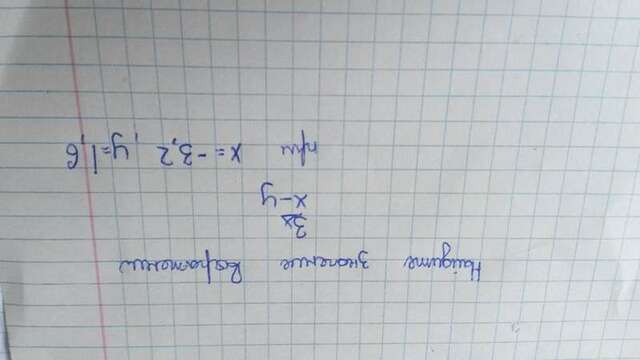 Найдите значение выражения
3x
x-y
при x=-3,2, y=1,6